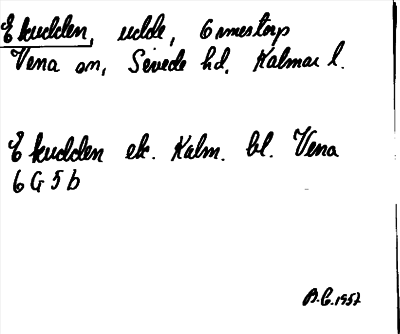 Ekudden, udde, Gmestorp
Vena sn, Sevede hd, Kalmar l.
Ekudden ek. Kalm. bl. Vena
6 G 5 b
B.G. 1957